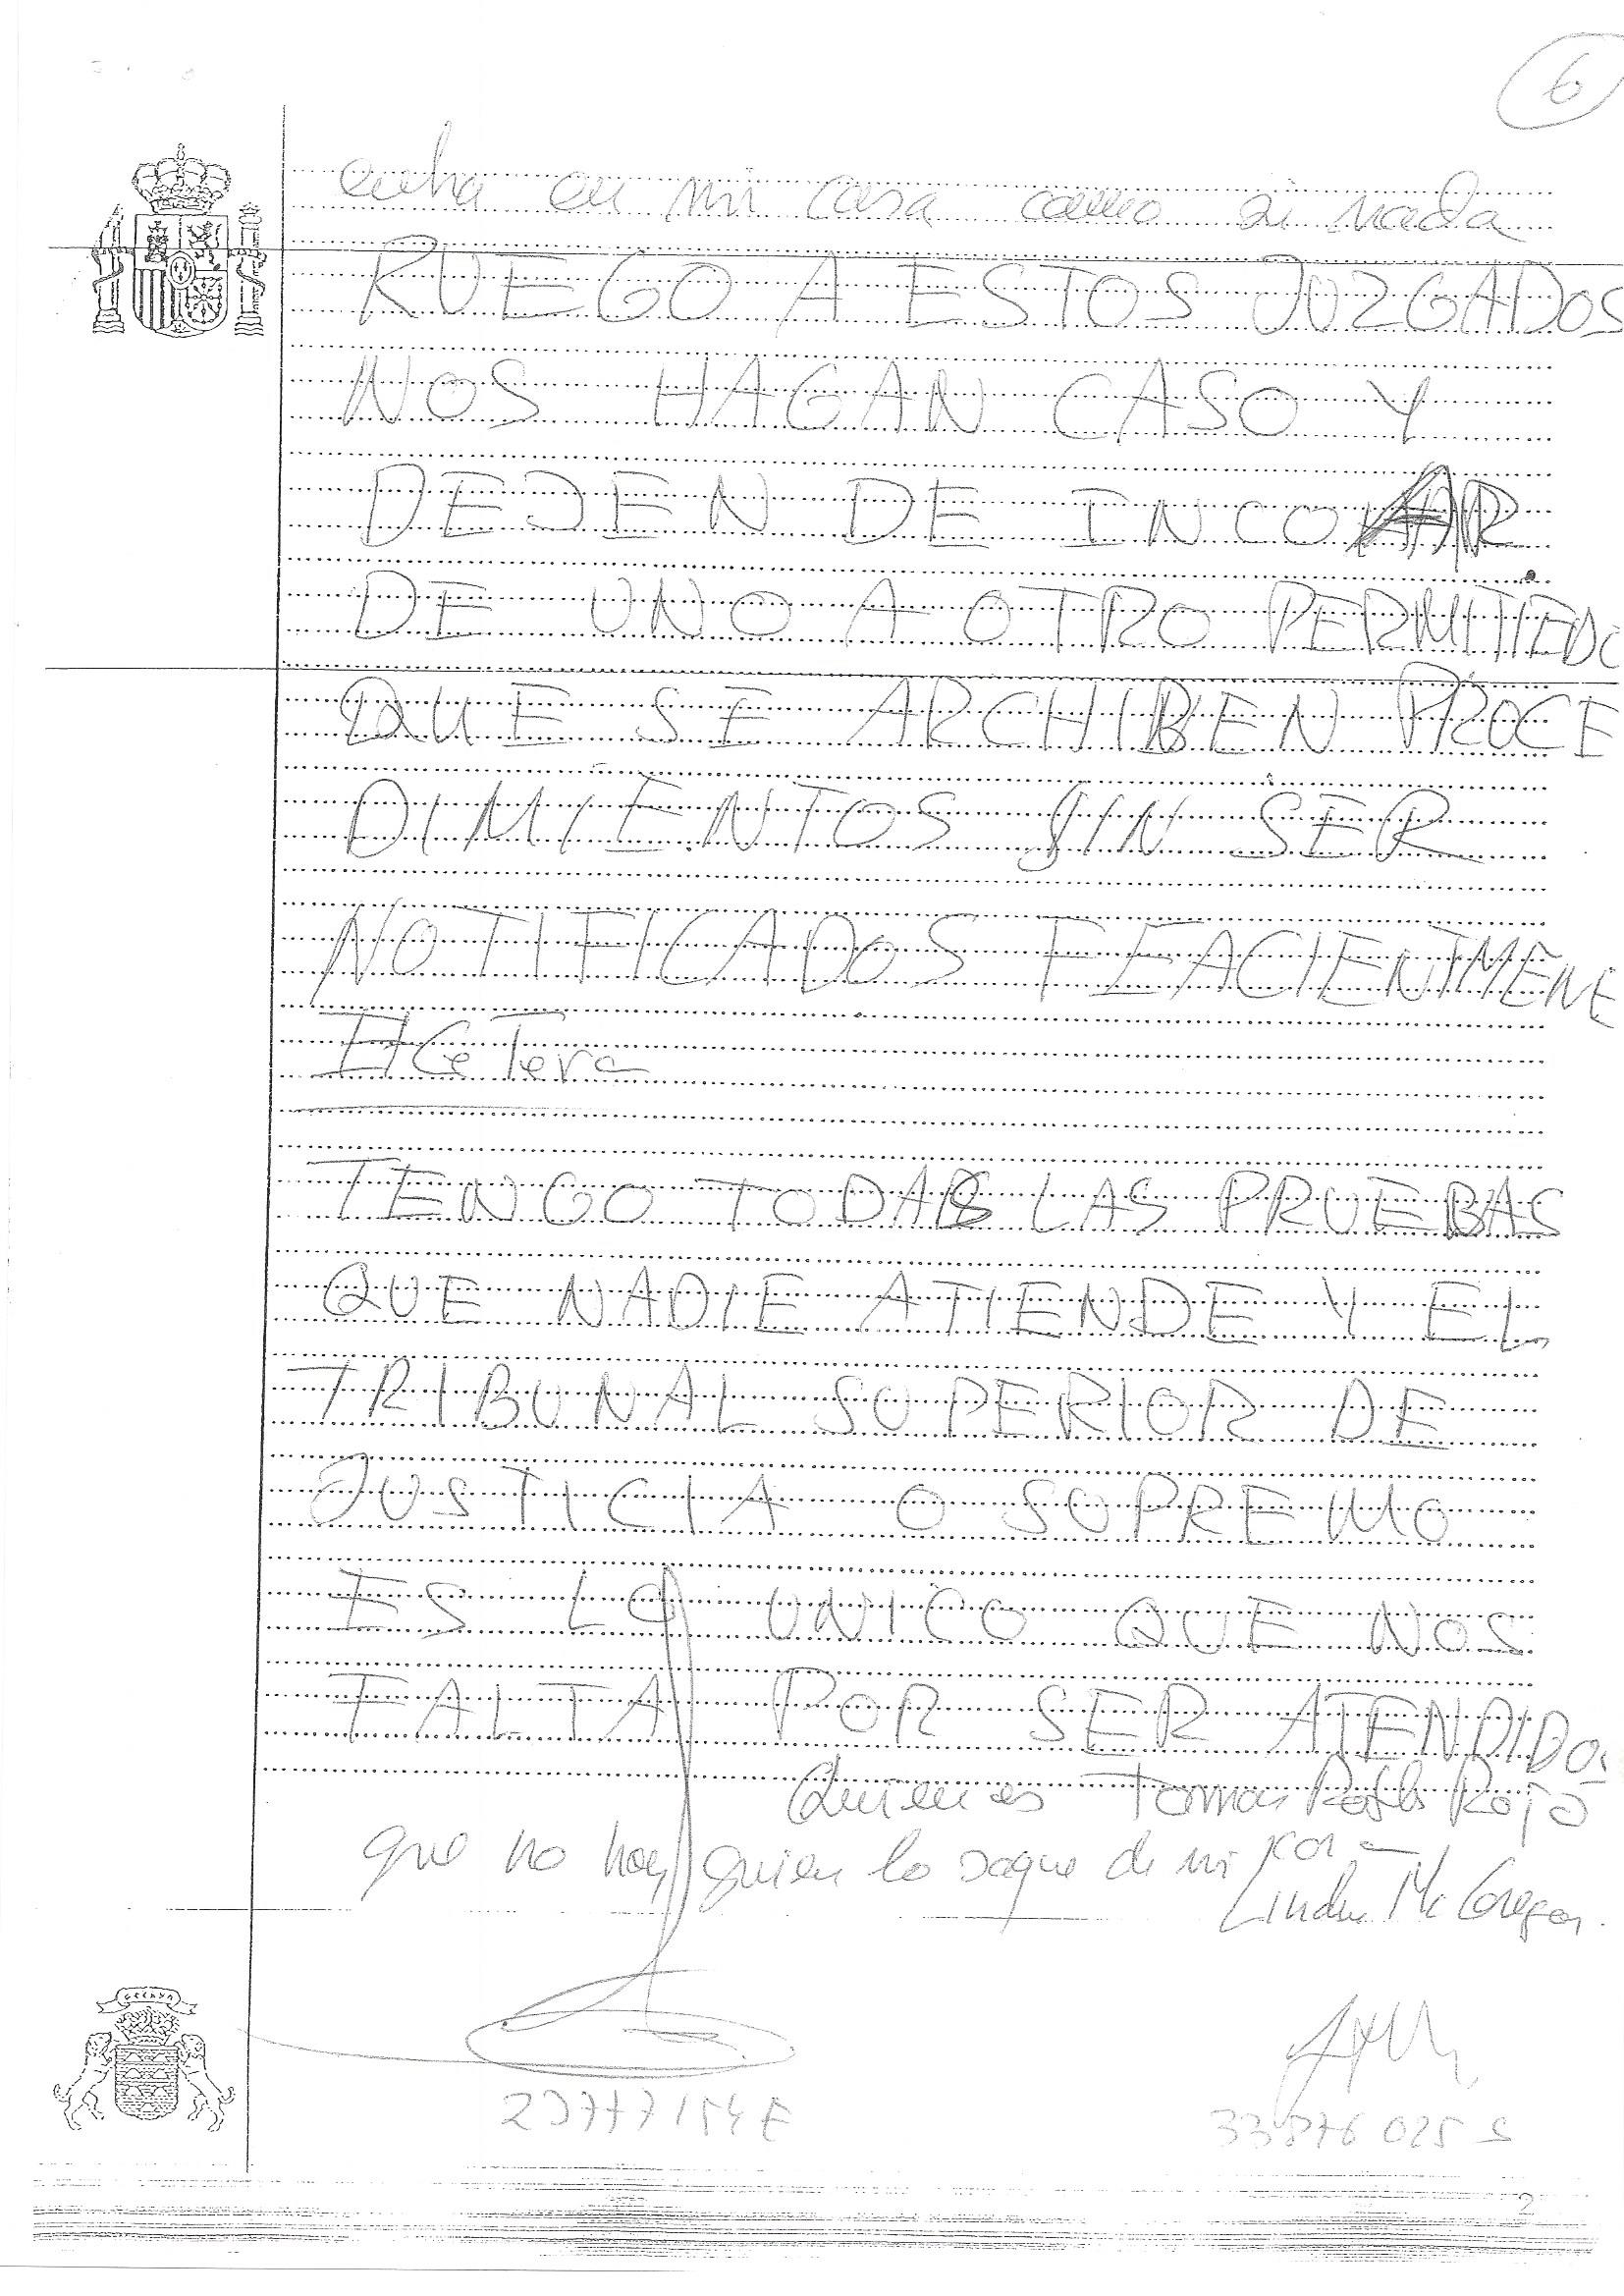 6
entra en mi casa como si nada
RUEGO A ESTOS JUZGADOS
NOS HAGAN CASO Y
DEJEN DE INCOAR
DE UNO A OTRO PERMITIEDO
QUE SE ARCHIBEN PROCE
DIMIENTOS SIN SER
NOTIFICADOS FEACIENTMENE
ETCeTera
TENGO TODAS LAS PRUEBAS
QUE NADIE ATIENDE Y EL
TRIBUNAL SUPERIOR DE
JUSTICIA O SUPREMO
ES LO UNICO QUE NOS
FALTA POR SER ATENDIDOS
Quien es Tomas Rojo
que no hay quien lo saque de mi
Linda Mc Gregor.
OCEANO
23777154E
33876025 S
2